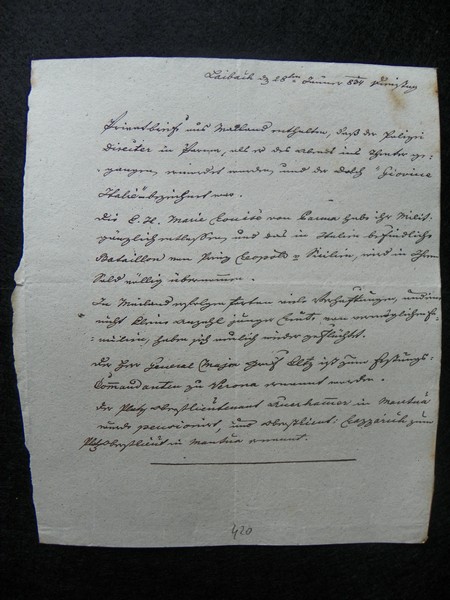 Laibach den 28ten Jänner 834 Dienstag
Privatbriefe aus Mailand enthalten, daß der Polizei
Director in Parma, als er des Abends ins Theater ge-
gangen, ermordet worden, und der Dolch "Giovine
Italia" bezeichnet war.
Die E. H. Marie Louise von Parma habe ihr Militär
gänzlich entlassen, und das in Italien befindliche
Bataillon von Prinz Leopold Sicilien, wird in ihren
Sold völlig übernommen.
In Mailand erfolgen fortan viele Verhaftungen, und eine
nicht kleine Anzahl junger Leute, von vermöglichen Fa-
milien, haben sich neulich wieder geflüchtet.
Der Herr General Major Graf ist zum Festungs-
Commandanten zu Verona ernannt worden.
Der Platz Oberstlieutenant Auerhammer in Mantua
wurde pensionirt, und Oberstlieut. zum
Platzoberstlieut in Mantua ernannt.
420